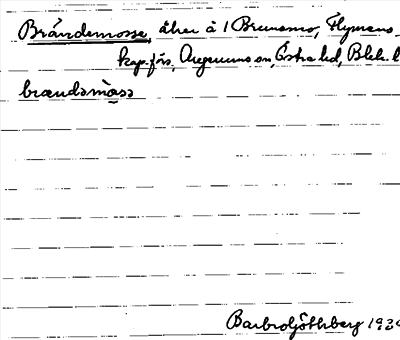 Brändemosse, åker å 1 Brunsmo, Flymens
kap.förs, Augerums sn, Östra hd, Blek. l
brændəmȯsə
Barbro Göthberg 1939